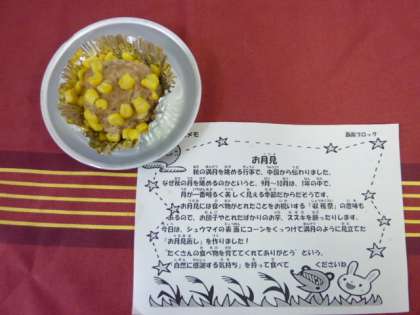 メモ
お月見
秋の満月を眺める行事で、中国から伝わりました。
なぜ秋の月を眺めるのかというと、9月～10月は、1年の中で、
月が一番明るく美しく見える季節だからだそうです。
お月見には食べ物がとれたことをお祝いする「収穫祭」の意味も
あるので、お団子やとれたばかりの芋、ススキを飾ったりします。
今日は、シュウマイの表面にコーンをくっつけて満月のように見立てた
「お月見蒸し」を作りました！
「たくさんの食べ物を育ててくれてありがとう」という、
「自然に感謝する気持ち」を持って食べて くださいね